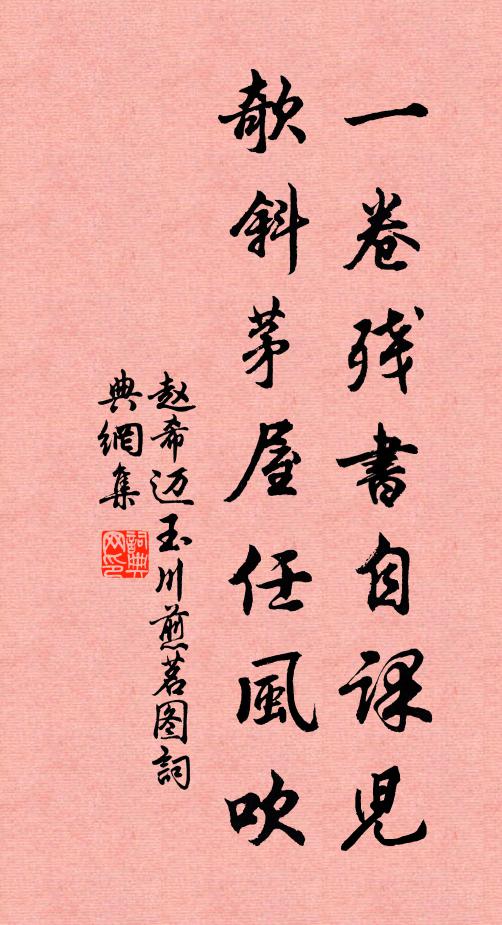 一卷残書自課児
欹斜茅屋任風吹
赵希迈玉川煎茗图詞
典網集
詞典网印